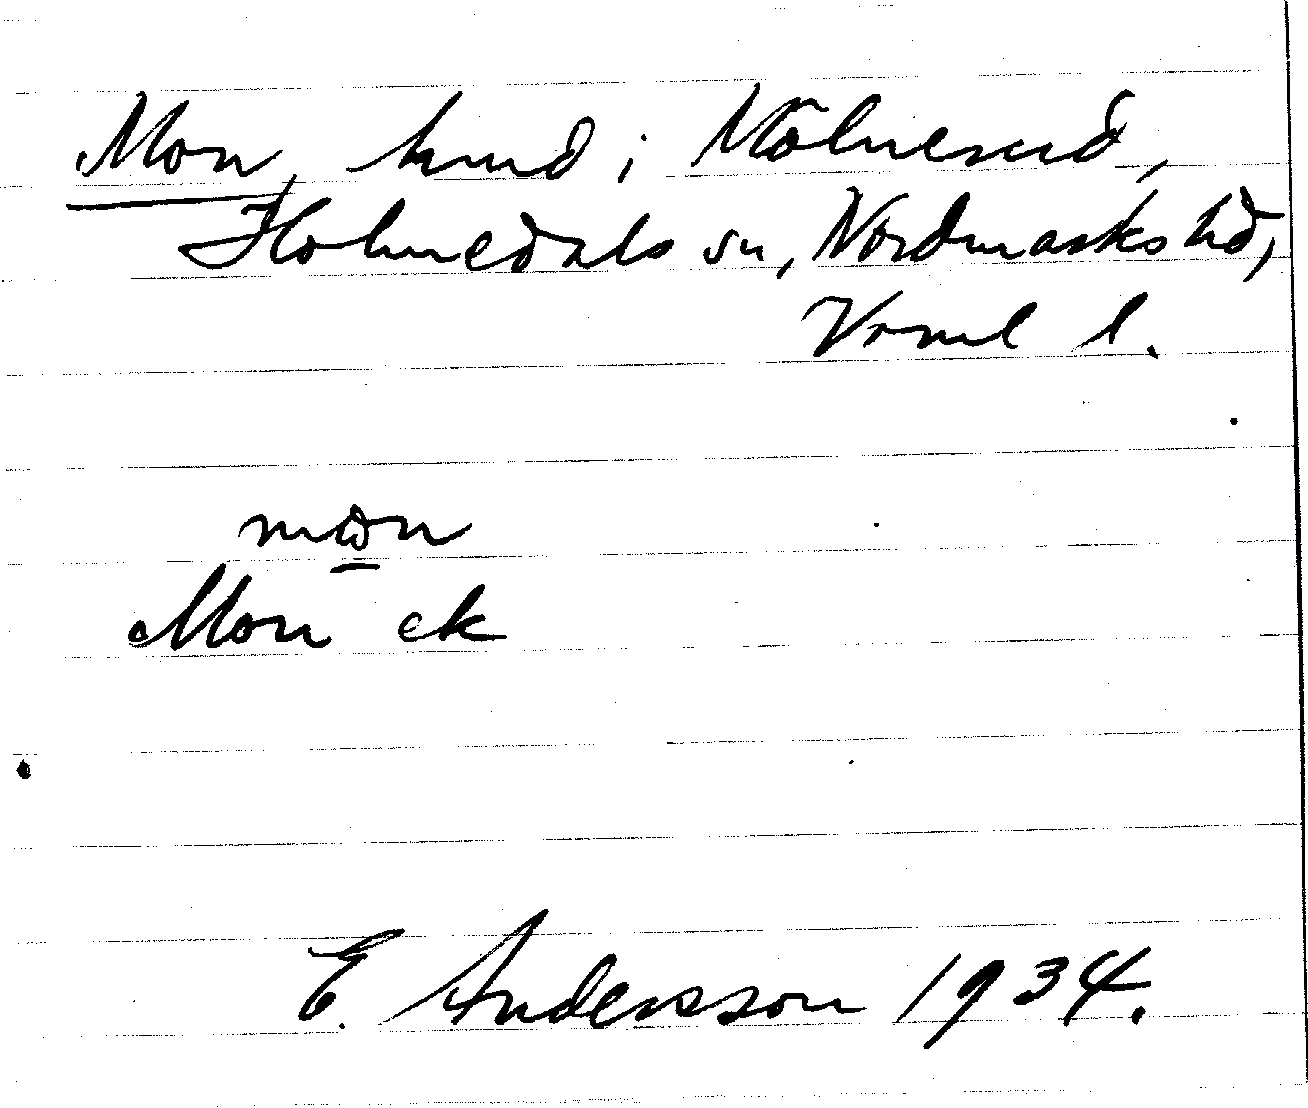 Mon, hmd i Mölnerud,
Holmedals sn, Nordmarks hd,
Vrml l.
mon
Mon ek
E. Andersson 1934.